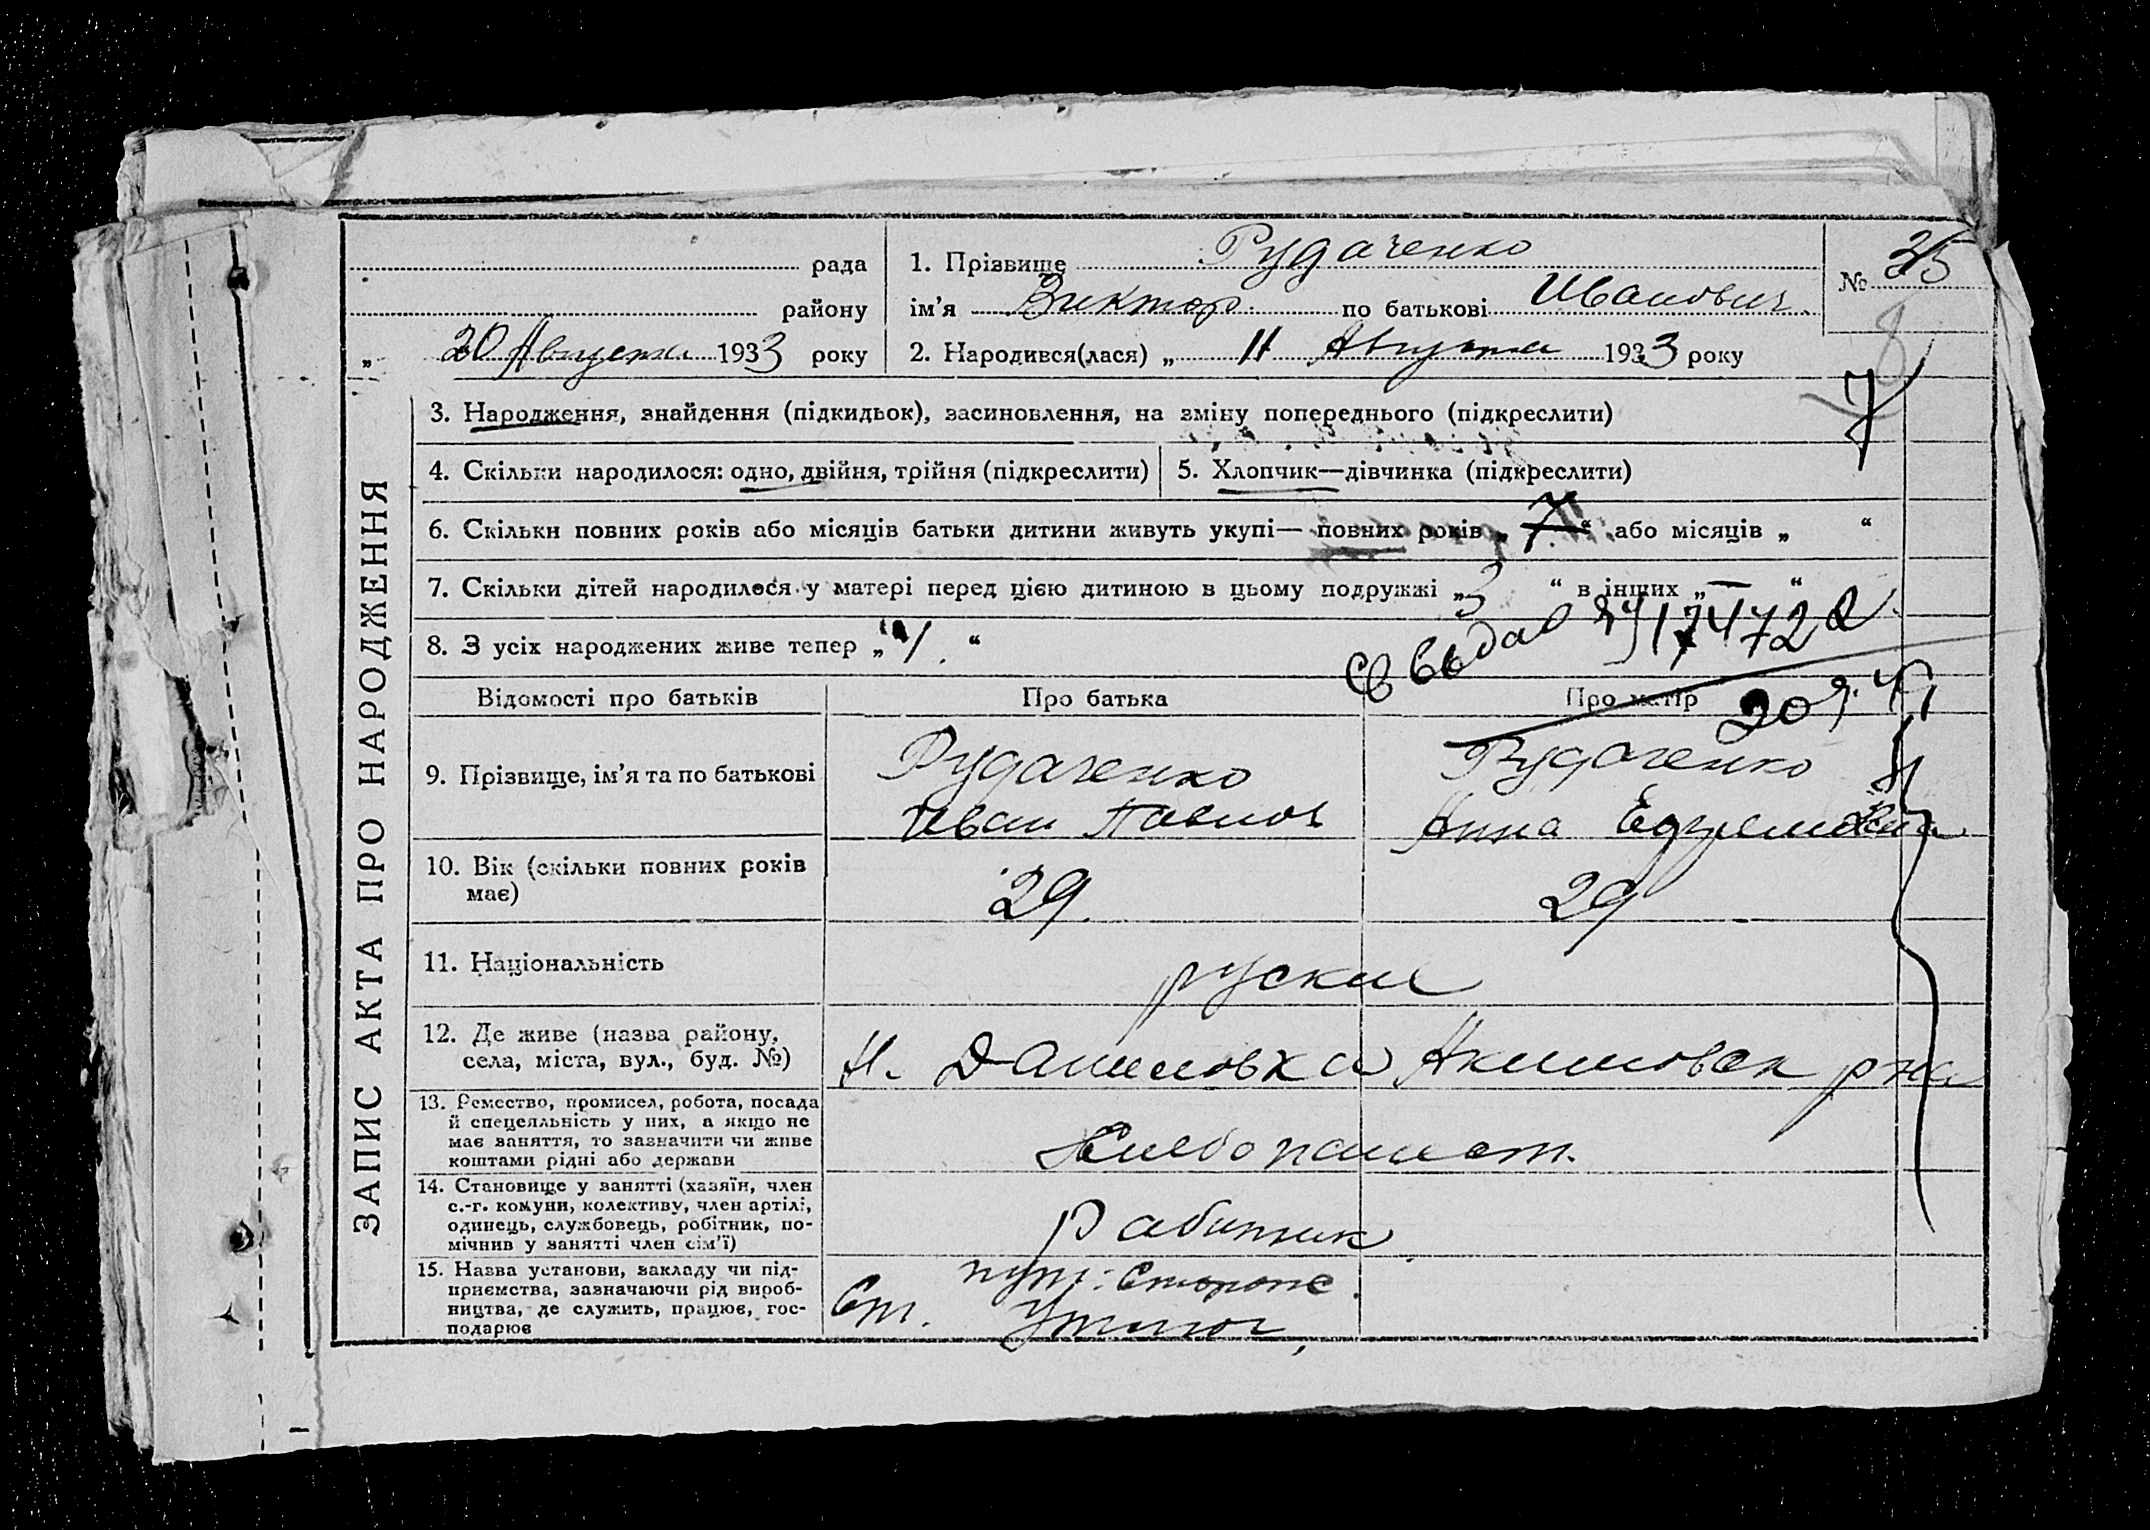 рада
району
„ 20 Августа 1933 року
1. Прізвище Рудаченко
ім'я Виктор по батькові Иванович
2. Народився(лася) „ 11 Августа 1933 року
№ 35
7
ЗАПИС АКТА ПРО НАРОДЖЕННЯ
3. Народження, знайдення (підкидьок), засиновлення, на зміну попереднього (підкреслити)
4. Скільки народилося: одно, двійня, трійня (підкреслити)
5. Хлопчик—дівчинка (підкреслити)
6. Скільки повних років або місяців батьки дитини живуть укупі— повних років „ 7 “ або місяців „ “
7. Скільки дітей народилося у матері перед цією дитиною в цьому подружжі „ 3 “ в інших „ — “
8. З усіх народжених живе тепер „ “
Відомості про батьків
Про батька
Про матір
9. Прізвище, ім'я та по батькові
Рудаченко
Иван Павлов
Рудаченко
Анна
10. Вік (скільки повних років
має)
29
29
11. Національність
руские
12. Де живе (назва району,
села, міста, вул., буд. №)
Н. Даниловка Акимовск р на
13. Ремество, промисел, робота, посада
й спецеяльність у них, а якщо не
має заняття, то зазначити чи живе
коштами рідні або держави
Хлебопашест.
14. Становище у занятті (хазяїн, член
с.-г. комуни, колективу, член артілі,
одинець, службовець, робітник, по-
мічнив у занятті член сім'ї)
Рабитник
15. Назва установи, закладу чи під-
приємства, зазначаючи рід вироб-
ництва, де служить, працює, гос-
подарює
Ст.